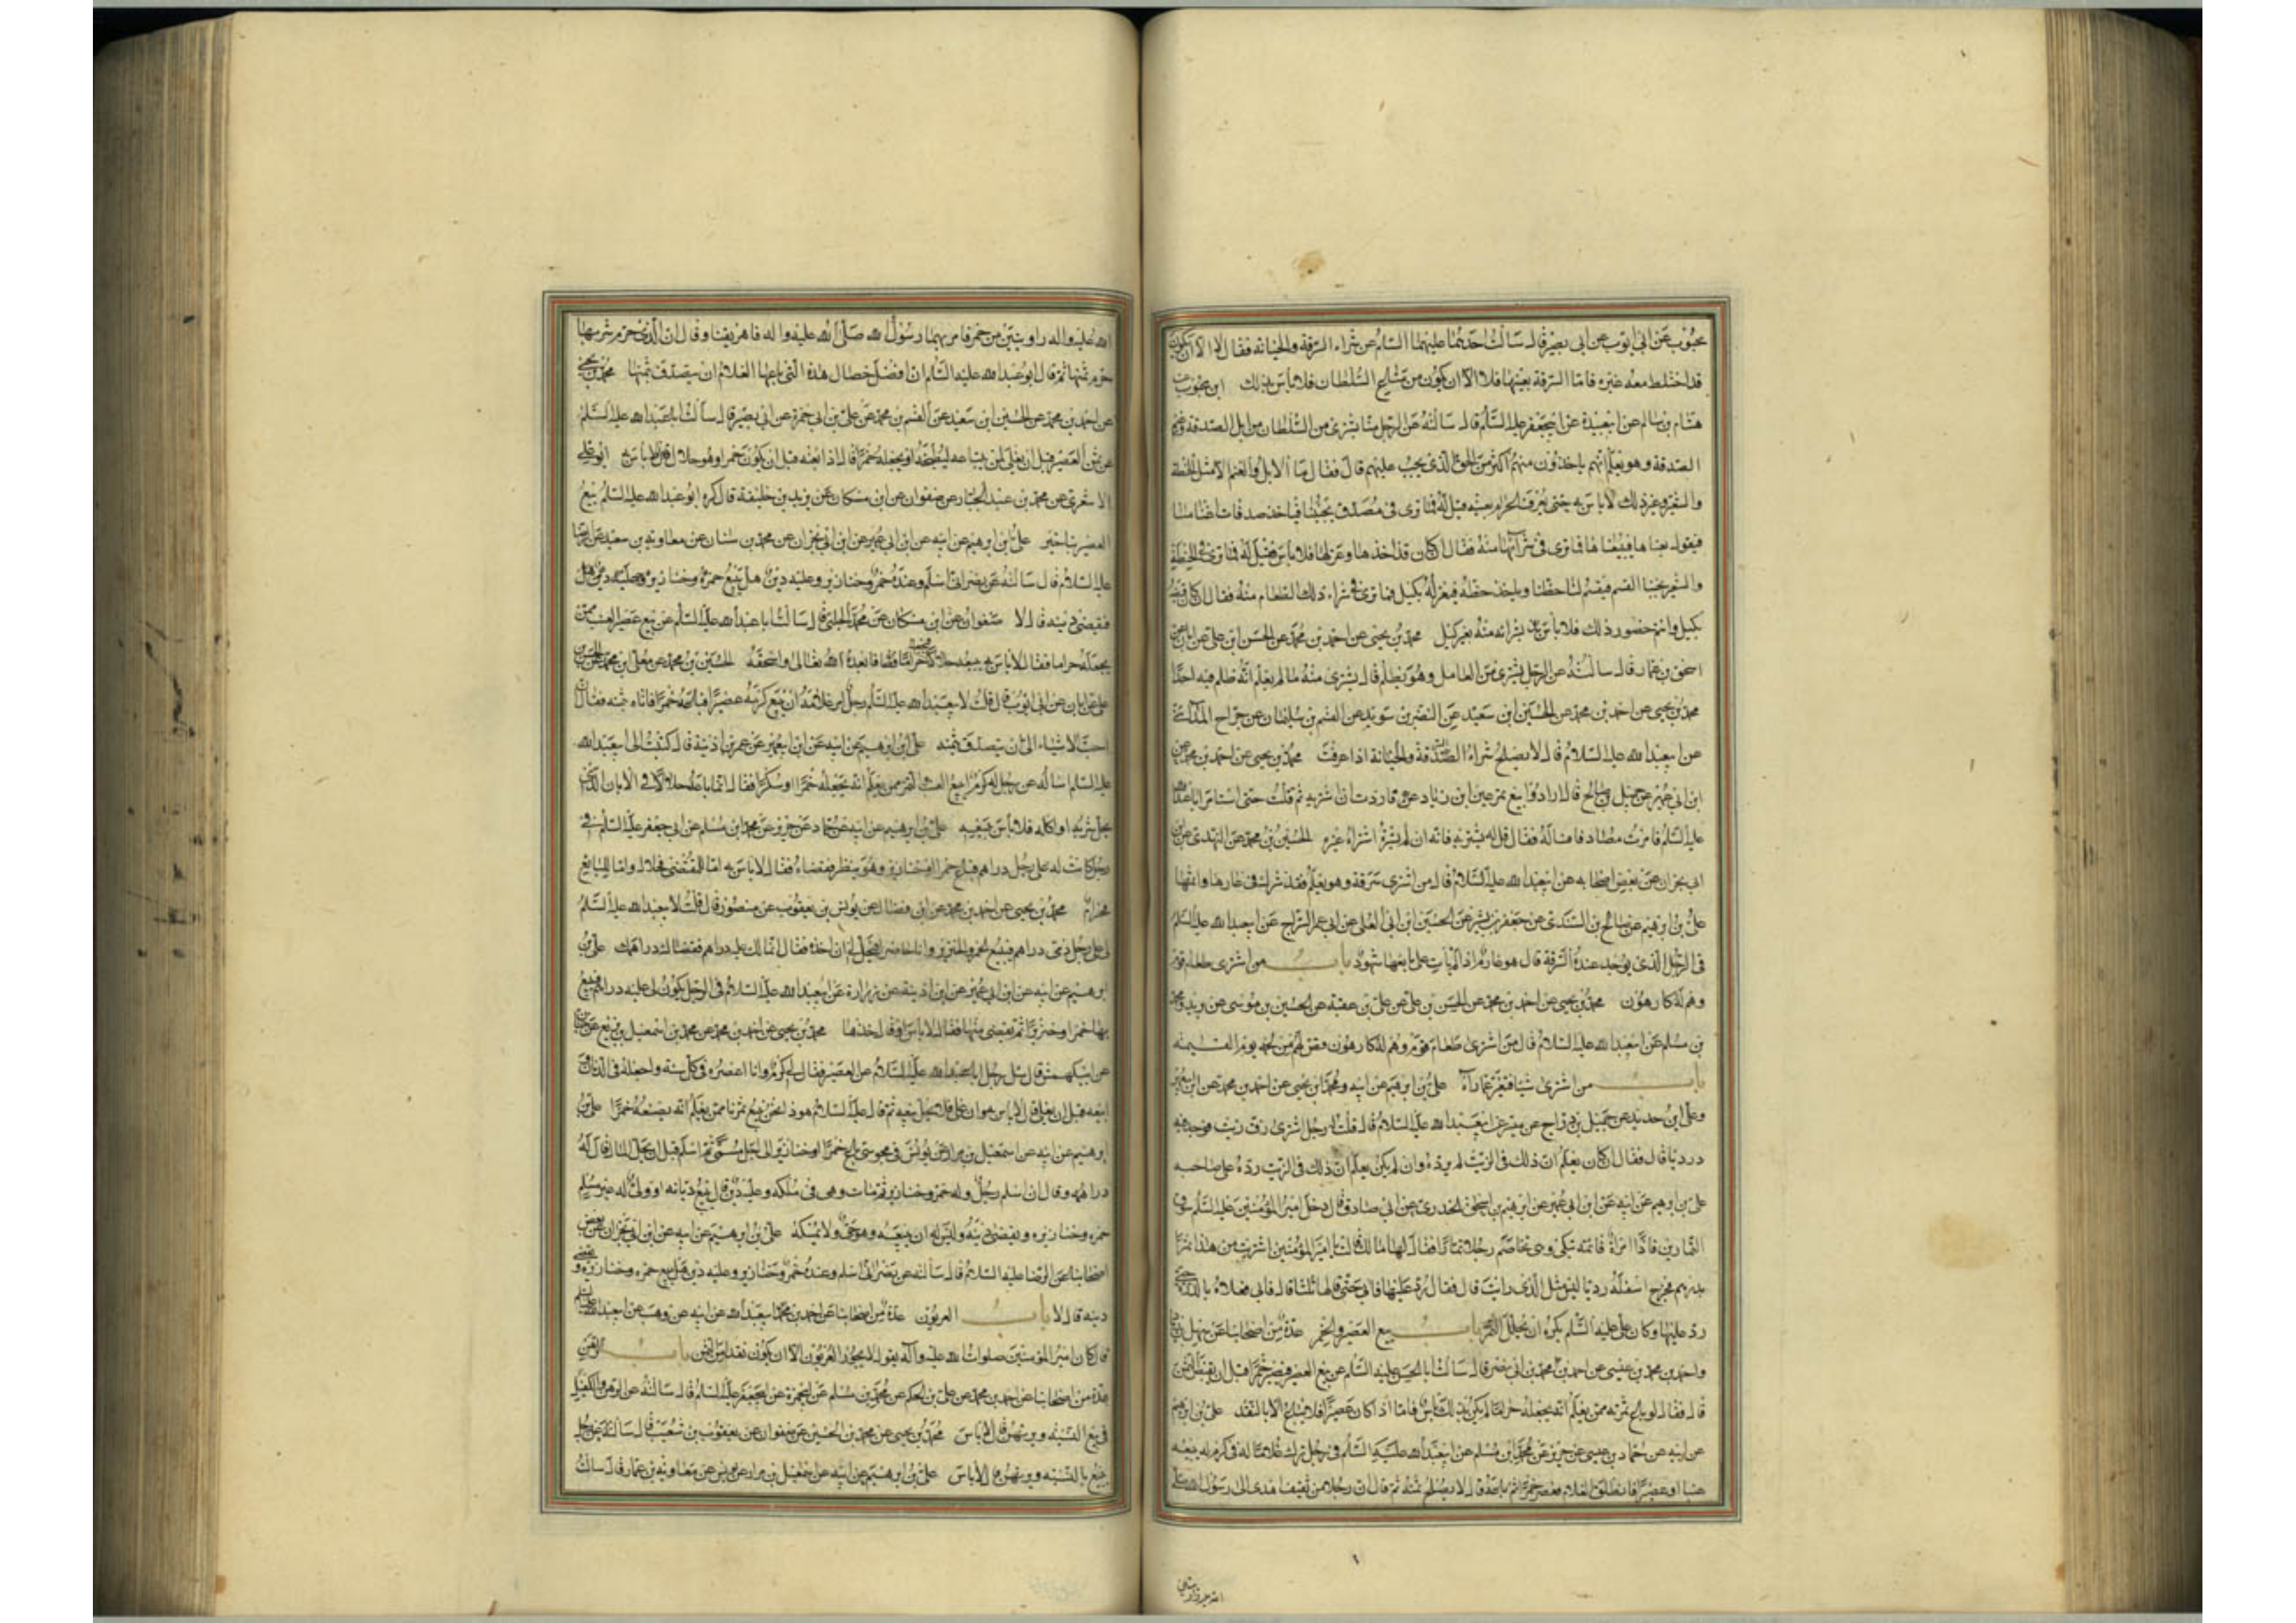 محبوب عن ابي ايوب عن ابي بصير قال سالت احدهما عليهما السلم عن شراء السرقة والخيانه فقال لا الا ان يكون
قد اختلط معه غيره فاما السرقة بعينها فلا الا ان يكون من متاع السلطان فلا باس بذلك ابن محبوب عن
هشام بن سالم عن ابي عبيدة عن ابي جعفر عليه السلم قال سالته عن الرجل منا يشترى من السلطان من ابل الصدقة وغنم
الصدقة وهو يعلم انهم ياخذون منهم اكثر من الحق الذى يجب عليهم قال فقال ما الابل والغنم الا مثل الحنطة
والشعير وغير ذلك لا باس به حتى يعرف الحرام بعينه قيل له فما ترى فى مصدق يجيئنا فياخذ صدقات اغنامنا
فيقول بعناها فيبيعناها فما ترى فى شرائها منه فقال ان كان قد اخذها وعزلها فلا باس فقيل له فما ترى فى الحنطة
والشعير يجيئنا القسم فيقسم لنا حظنا وياخذ حظه فيعزله بكيل فما ترى فى شراء ذلك الطعام منه فقال ان كان قبضه
بكيل وانتم حضور ذلك فلا باس بشرائه منه بغير كيل محمد بن يحيى عن احمد بن محمد عن الحسن بن على عن ابان عن
اسحق بن عمار قال سالته عن الرجل يشترى من العامل وهو يظلم قال يشترى منه ما لم يعلم انه ظلم فيه احدا
محمد بن يحيى عن احمد بن محمد عن الحسين ابن سعيد عن النضر بن سويد عن القسم بن سليمان عن جراح المدائنى
عن ابي عبد الله عليه السلام قال لا يصلح شراء السرقة والخيانة اذا عرفت محمد بن يحيى عن احمد بن محمد عن
ابن ابي عمير عن جميل بن صالح قال ارادوا بيع تمر عين ابن زياد فاردت ان اشتريه ثم قلت حتى استامر ابا عبد الله
عليه السلم فامرت مصادفا فساله فقال قل له يشتريه فانه ان لم يشتره اشتراه غيره الحسين بن محمد عن النهدى عن ابن
ابي نجران عن بعض اصحابه عن ابي عبد الله عليه السلام قال من اشترى سرقة وهو يعلم فقد شرك فى عارها واثمها
على بن ابرهيم عن صالح بن السندى عن جعفر بن بشير عن الحسين ابن ابي العلى عن ابي عمر السراج عن ابي عبد الله عليه السلم
فى الرجل الذى يوجد عنده السرقة قال هو غارم اذا لم يات على بايعها شهود باب من اشترى طعام قوم
وهم له كارهون محمد بن يحيى عن احمد بن محمد عن الحسن بن على عن على بن عقبة عن الحسين بن موسى عن بريد ومحمد
بن مسلم عن ابي عبد الله عليه السلام قال من اشترى طعام قوم وهم له كارهون قص لهم من لحمه يوم القيمه
باب من اشترى شيئا فتغير عما رآه على بن ابرهيم عن ابيه ومحمد ابن يحيى عن احمد بن محمد عن ابن ابي عمير
وعلى ابن حديد عن جميل بن دراج عن ميسر عن ابي عبد الله عليه السلام قال قلت له رجل اشترى زق زيت فوجد فيه
درديا قال فقال ان كان يعلم ان ذلك فى الزيت لم يرده وان لم يكن يعلم ان ذلك فى الزيت رده على صاحبه
على بن ابرهيم عن ابيه عن ابن ابي عمير عن ابرهيم بن اسحق الخدرى عن ابي صادق قال دخل امير المؤمنين عليه السلم سوق
التمارين فاذا امراة قائمة تبكى وهى تخاصم رجلا تمارا فقال لها مالك قالت يا امير المؤمنين اشتريت من هذا تمرا
بدرهم فخرج اسفله رديا ليس مثل الذى رايت قال فقال رد عليها فابى حتى قالها ثلثا قال فابى فعلاه بالدرة حتى
رد عليها وكان على عليه السلم يكره ان يجلل التمر باب بيع العصير والخمر عدة من اصحابنا عن سهل بن زياد
واحمد بن محمد بن عيسى عن احمد بن محمد بن ابي نصر قال سالت ابا الحسن عليه السلم عن بيع العصير فيصير خمرا قبل ان يقبض الثمن
قال فقال لو باع ثمرته ممن يعلم انه يجعله حراما لم يكن بذلك باس فاما اذا كان عصيرا فلا يباع الا بالنقد على بن ابرهيم
عن ابيه عن حماد بن عيسى عن حريز عن محمد ابن مسلم عن ابي عبد الله عليه السلم فى رجل ترك غلاما له فى كرم له يبيعه
عنبا او عصيرا فانطلق الغلام فعصر خمرا ثم باعه قال لا يصلح ثمنه ثم قال ان رجلا من ثقيف اهدى الى رسول الله صلى
الله عليه واله راويتين من خمر فامر بهما رسول الله صلى الله عليه واله فاهريقتا وقال ان الذى حرم شربها
حرم ثمنها ثم قال ابو عبد الله عليه السلام ان افضل خصال هذه التى باعها الغلام ان يتصدق بثمنها محمد بن يحيى
عن احمد بن محمد عن الحسين ابن سعيد عن القسم بن محمد عن على بن ابي حمزة عن ابي بصير قال سالت ابا عبد الله عليه السلم
عن ثمن العصير قبل ان يغلى لمن يبتاعه ليطبخه او يجعله خمرا قال اذا بعته قبل ان يكون خمرا وهو حلال فلا باس ابو على
الاشعرى عن محمد بن عبد الجبار عن صفوان عن ابن مسكان عن يزيد بن خليفة قال كره ابو عبد الله عليه السلم بيع
العصير بتاخير على ابن ابرهيم عن ابيه عن ابن ابي عمير عن ابن ابي نجران عن محمد بن سنان عن معاوية بن سعيد عن الرضا
عليه السلام قال سالته عن نصرانى اسلم وعنده خمر وخنازير وعليه دين هل يبيع خمره وخنازيره
فيقضى دينه قال لا صفوان عن ابن مسكان عن محمد الحلبى قال سالت ابا عبد الله عليه السلم عن بيع عصير العنب ممن
يجعله حراما فقال لا باس به يبيعه حلالا فيجعله حراما فابعده الله تعالى واسحقه الحسين بن محمد عن معلى بن محمد عن الحسن بن
على عن ابان عن ابي ايوب قال قلت لابي عبد الله عليه السلم رجل امر غلامه ان يبيع كرمه عصيرا فباعه خمرا فاتاه بثمنه فقال ان
احب الاشياء الى ان يتصدق بثمنه على ابن ابرهيم عن ابيه عن ابن ابي عمير عن عمر بن اذينة قال كتبت الى ابي عبد الله
عليه السلم اساله عن رجل له كرم ايبيع العنب والتمر ممن يعلم انه يجعله خمرا او سكرا فقال انما باعه حلالا فى الابان الذى
يحل شربه او اكله فلا باس ببيعه على بن ابرهيم عن ابيه عن حماد عن حريز عن محمد ابن مسلم عن ابي جعفر عليه السلم فى
رجل كانت له على رجل دراهم فباع خمرا او خنازير وهو ينظر فقضاه فقال لا باس به اما للمقتضى فحلال واما للبايع
فحرام محمد بن يحيى عن احمد بن محمد عن ابن فضال عن يونس بن يعقوب عن منصور قال قلت لابي عبد الله عليه السلم
لى على رجل ذمى دراهم فيبيع الخمر والخنزير وانا حاضر فيحل لى ان اخذها فقال انما لك عليه دراهم فقضاك دراهمك على بن
ابرهيم عن ابيه عن ابن ابي عمير عن ابن اذينة عن زرارة عن ابي عبد الله عليه السلام فى الرجل يكون لى عليه دراهم فيبيع
بها خمرا وخنزيرا ثم يقضى منها فقال لا باس او قال خذها محمد بن يحيى عن احمد بن محمد عن محمد بن اسمعيل بن بزيع عن حنان
عن ابي كهمش قال سئل رجل ابا عبد الله عليه السلام عن العصير فقال لى كرم وانا اعصره فى كل سنة واجعله فى الدنان و
ابيعه قبل ان يغلى قال لا باس به وان غلى فلا يحل بيعه ثم قال عليه السلام هو ذا نحن نبيع تمرنا ممن يعلم انه يصنعه خمرا على بن
ابرهيم عن ابيه عن اسمعيل بن مرار عن يونس فى مجوسى باع خمرا او خنازير الى اجل مسمى ثم اسلم قبل ان يحل المال قال له
دراهمه وقال ان اسلم رجل وله خمر وخنازير ثم مات وهى فى ملكه وعليه دين قال يبيع ديانه او ولى له غير مسلم
خمره وخنازيره ويقضى دينه وليس له ان يبيعه وهو حى ولا يمسكه على بن ابرهيم عن ابيه عن ابن ابي نجران عن بعض
اصحابنا عن الرضا عليه السلام قال سالته عن نصرانى اسلم وعنده خمر وخنازير وعليه دين هل يبيع خمره وخنازيره ويقضى
دينه قال لا باب العربون عدة من اصحابنا عن احمد بن محمد ابي عبد الله عن ابيه عن وهب عن ابي عبد الله عليه السلم
قال كان امير المؤمنين صلوات الله عليه وآله يقول لا يجوز العربون الا ان يكون نقدا من الثمن باب الرهن
عدة من اصحابنا عن احمد بن محمد عن على بن الحكم عن محمد بن مسلم عن ابي حمزة عن ابي جعفر عليه السلم قال سالته عن الرهن والكفيل
فى بيع النسيه ويرتهن قال لا باس محمد بن يحيى عن محمد بن الحسين عن صفوان عن يعقوب بن شعيب قال سالته عن رجل
يبيع بالنسيه ويرتهن قال لا باس على بن ابرهيم عن ابيه عن اسمعيل بن مرار عن يونس عن معاوية بن عمار قال سالت